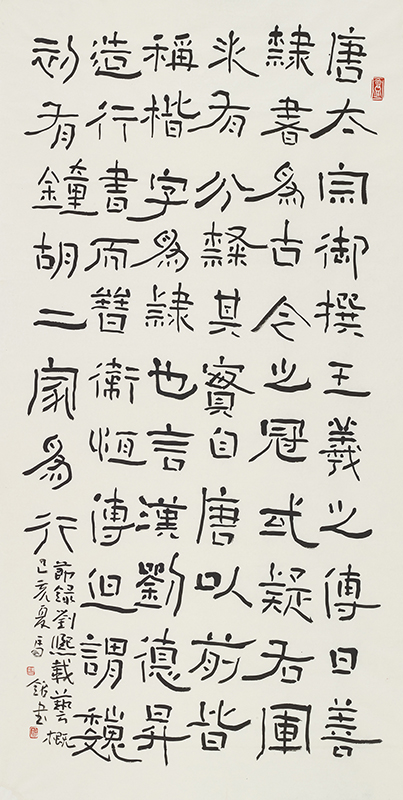 唐太宗御撰王羲之傳曰善
隸書為古今之冠或疑右軍
未有分隸其實自唐以前皆
稱楷字為隸也言漢劉德昇
造行書而晉衛恆傳但謂魏
初有鐘胡二家為行
節録劉熙載藝概
己亥夏馬書